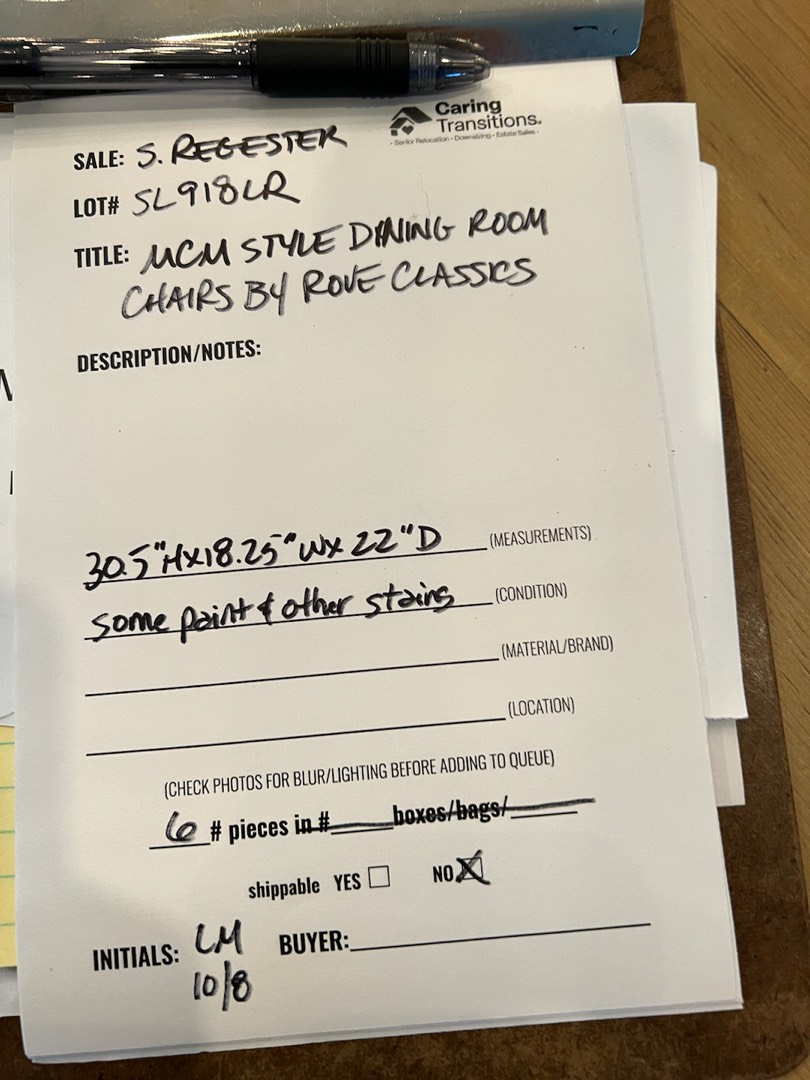 Caring
Transitions.
- Senior Relocation - Downsizing - Estate Sales -
SALE: S. REGESTER
LOT# SL918LR
TITLE: MCM STYLE DINING ROOM
CHAIRS BY ROVE CLASSICS
DESCRIPTION/NOTES:
30.5"Hx18.25"Wx22"D (MEASUREMENTS)
some paint & other stains (CONDITION)
(MATERIAL/BRAND)
(LOCATION)
(CHECK PHOTOS FOR BLUR/LIGHTING BEFORE ADDING TO QUEUE)
6 # pieces in # boxes/bags/
shippable YES NO X
INITIALS: LM BUYER:
10/8